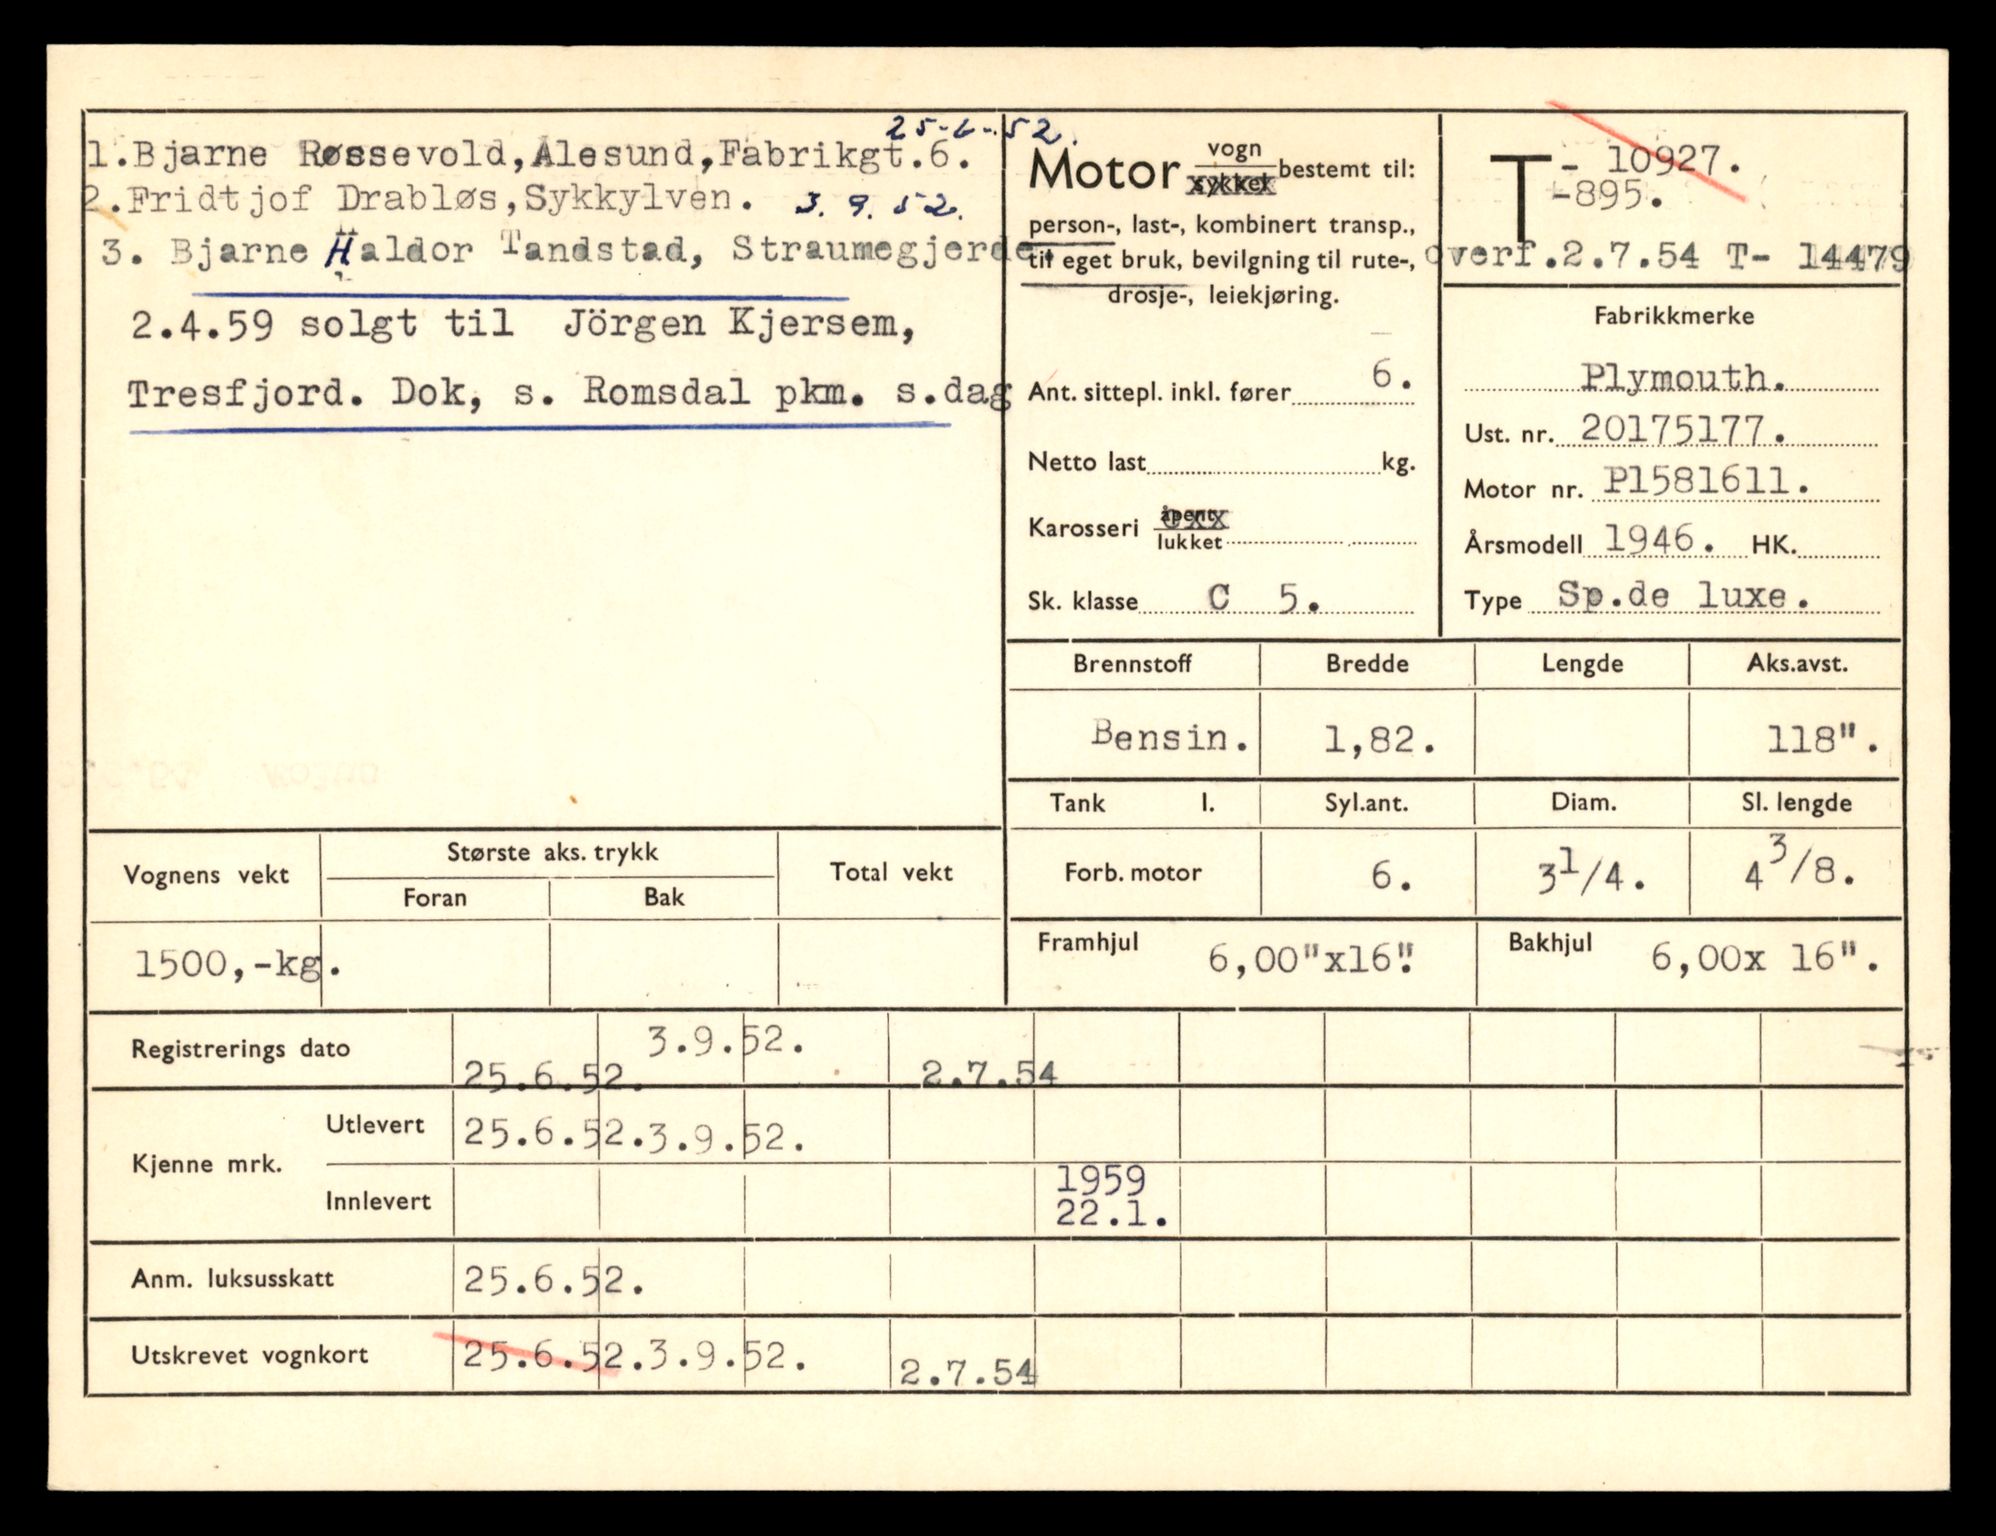 25-6-52.
1.Bjarne Røssevold,Ålesund,Fabrikgt.6.
2.Fridtjof Drabløs,Sykkylven. 3.9.52.
3. Bjarne Haldor Tandstad, Straumegjerde.
2.4.59 solgt til Jörgen Kjersem,
Tresfjord. Dok, s. Romsdal pkm. s.dag
Motor vogn sykkel bestemt til:
person-, last-, kombinert transp.,
til eget bruk, bevilgning til rute-,
drosje-, leiekjøring.
Ant. sittepl. inkl. fører 6.
Netto last kg.
Karosseri åpent lukket
Sk. klasse C 5.
T- 10927.
-895.
overf.2.7.54 T- 14479
Fabrikkmerke
Plymouth.
Ust. nr. 20175177.
Motor nr. P1581611.
Årsmodell 1946. HK.
Type Sp.de luxe.
Brennstoff Bredde Lengde Aks.avst.
Bensin. 1,82. 118".
Tank l. Syl.ant. Diam. Sl. lengde
Forb. motor 6. 3 1/4. 4 3/8.
Framhjul 6,00"x16". Bakhjul 6,00x 16".
Vognens vekt Største aks. trykk Total vekt
Foran Bak
1500,-kg.
Registrerings dato 25.6.52. 3.9.52. 2.7.54
Kjenne mrk. Utlevert 25.6.52. 3.9.52.
Innlevert 1959
22.1.
Anm. luksusskatt 25.6.52.
Utskrevet vognkort 25.6.52. 3.9.52. 2.7.54